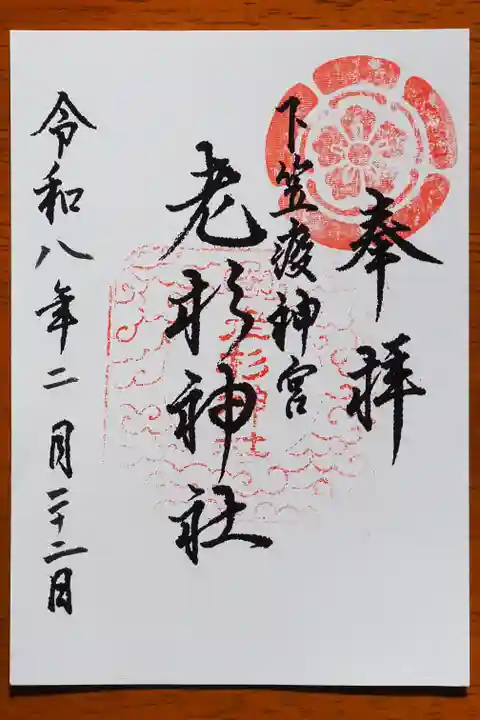 奉拝
下笠渡神宮
老杉神社
令和八年二月二十二日
老杉神社